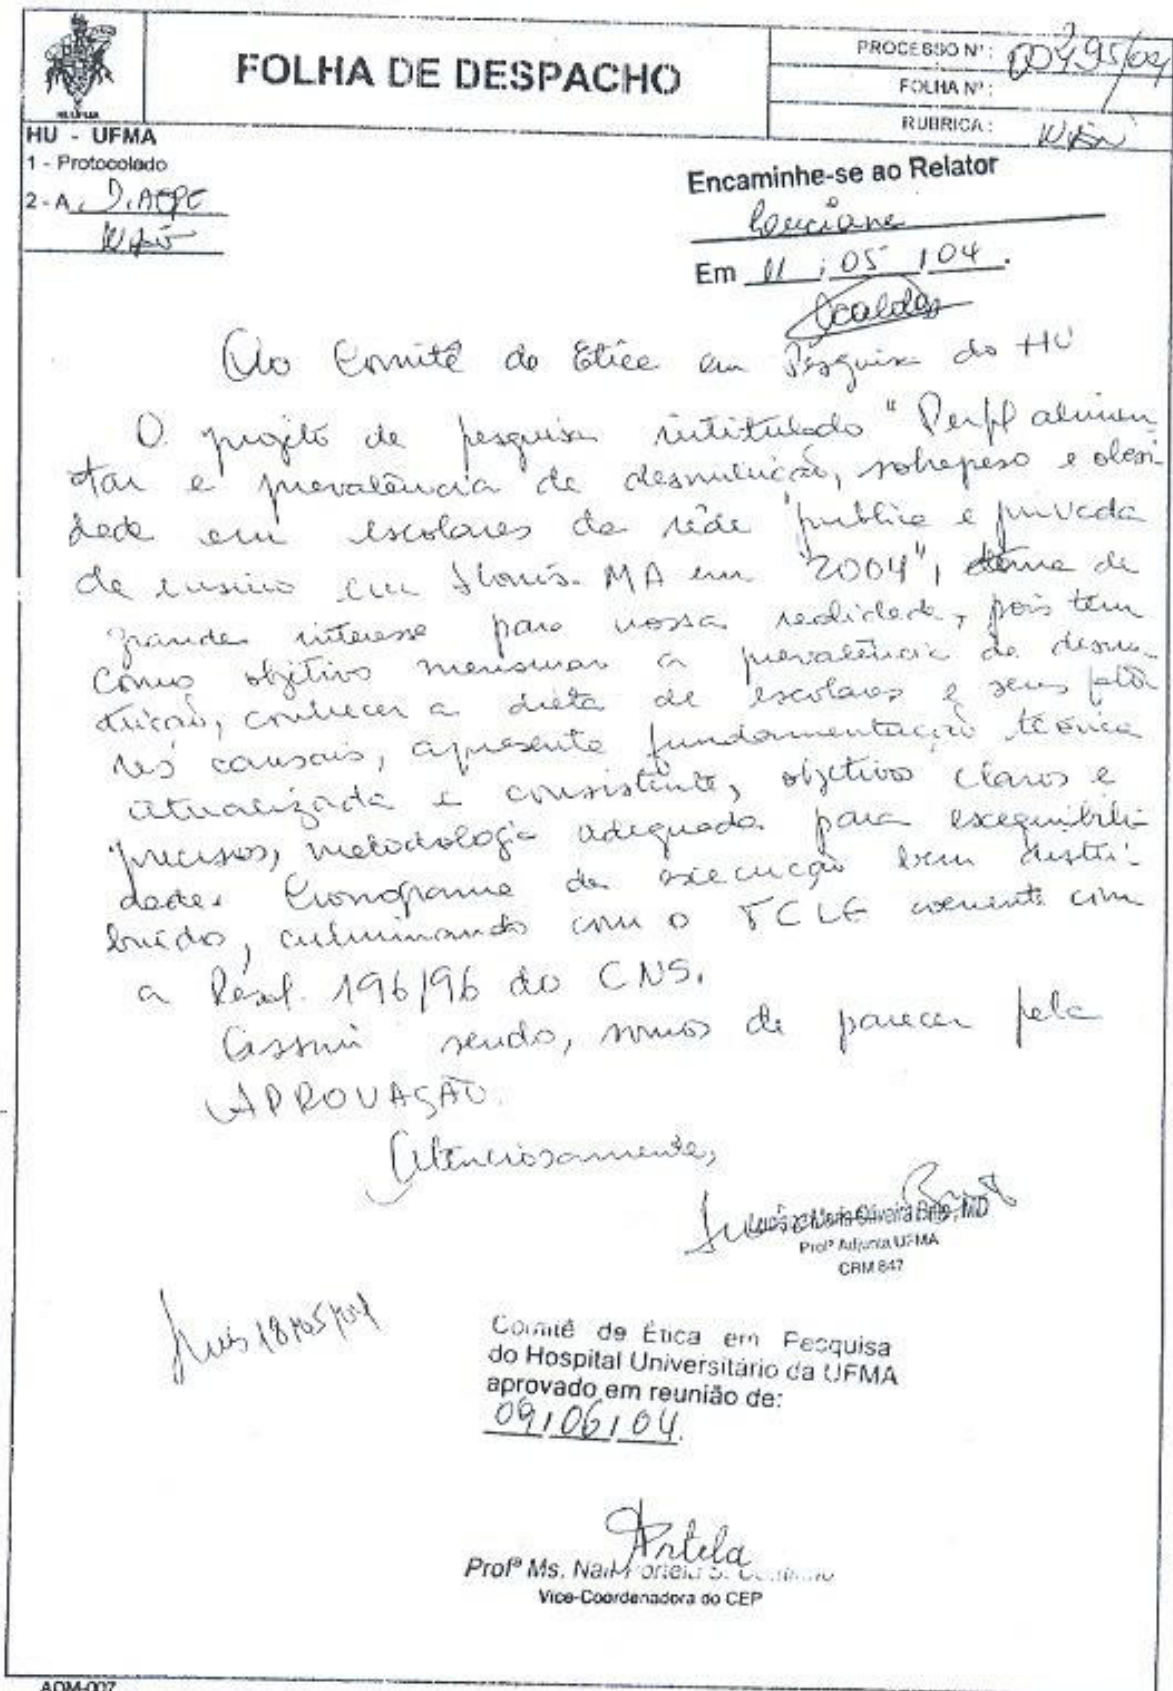 FOLHA DE DESPACHO
PROCESSO Nº: 00495/04
FOLHA Nº:
RUBRICA:
HU - UFMA
1 - Protocolado
2 - A. DIAEPE
Encaminhe-se ao Relator
Luciane
Em 11 / 05 / 04.
Ao Comitê de Ética em Pesquisa do HU
O projeto de pesquisa intitulado "Perfil alimen
tar e prevalência de desnutrição, sobrepeso e obesi-
dade em escolares da rede pública e privada
de ensino em S. Luis-MA em 2004", tema de
grande interesse para nossa realidade, pois tem
como objetivo mensurar a prevalência de desnu-
trição, conhecer a dieta de escolares e seus fato
res causais, apresenta fundamentação teórica
atualizada e consistente, objetivos claros e
precisos, metodologia adequada para exequibili-
dade. Cronograma de execução bem distri-
buído, culminando com o TCLE coerente com
a Resol. 196/96 do CNS.
Assim sendo, somos de parecer pela
APROVAÇÃO.
Atenciosamente,
Maria Oliveira Brito, MD
Profª Adjunta UFMA
CRM 847
18/05/04
Comitê de Ética em Pesquisa
do Hospital Universitário da UFMA
aprovado em reunião de:
09/06/04.
Profª Ms. Nair Portela
Vice-Coordenadora do CEP
ADM-007